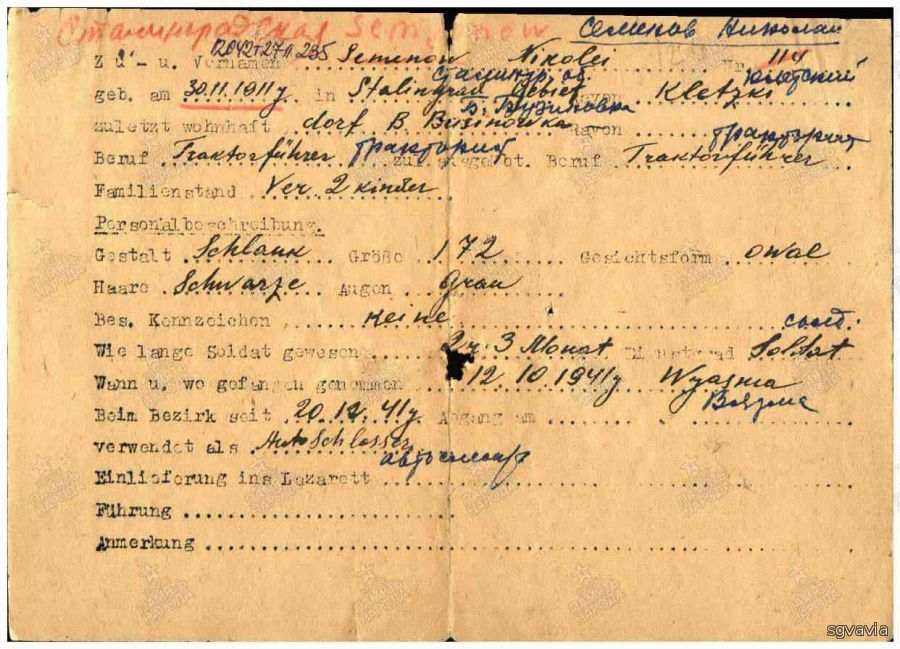 Сталинградская Semenow Семенов Николай
12042т27л235
Zu- u. Vornamen Semenow Nikolei Nr. 114
Сталингр. об. Клетский
geb. am 30.11.1911 у. in Stalingrad Gebiet Rayon Kletzki
Б. Бузиновка
zuletzt wohnhaft dorf B Businowka Rayon
тракторист тракторист
Beruf Traktorführer zul. ausgeübt. Beruf Traktorführer
Familienstand Ver. 2 kinder
Personalbeschreibung.
Gestalt Schlank Größe 1.72 Gesichtsform owal
Haare Schwarze Augen Grau
Bes. Kennzeichen keine
солд.
Wie lange Soldat gewesen 3 Monat Dienstgrad Soldat
Wann u. wo gefangen genommen 12.10.1941 у Wyasma
Вязьма
Beim Bezirk seit 20.12.41 у. Abgang am
verwendet als Auto Schlosser
автослесарь
Einlieferung ins Lazarett
Führung
Anmerkung
sgvavia